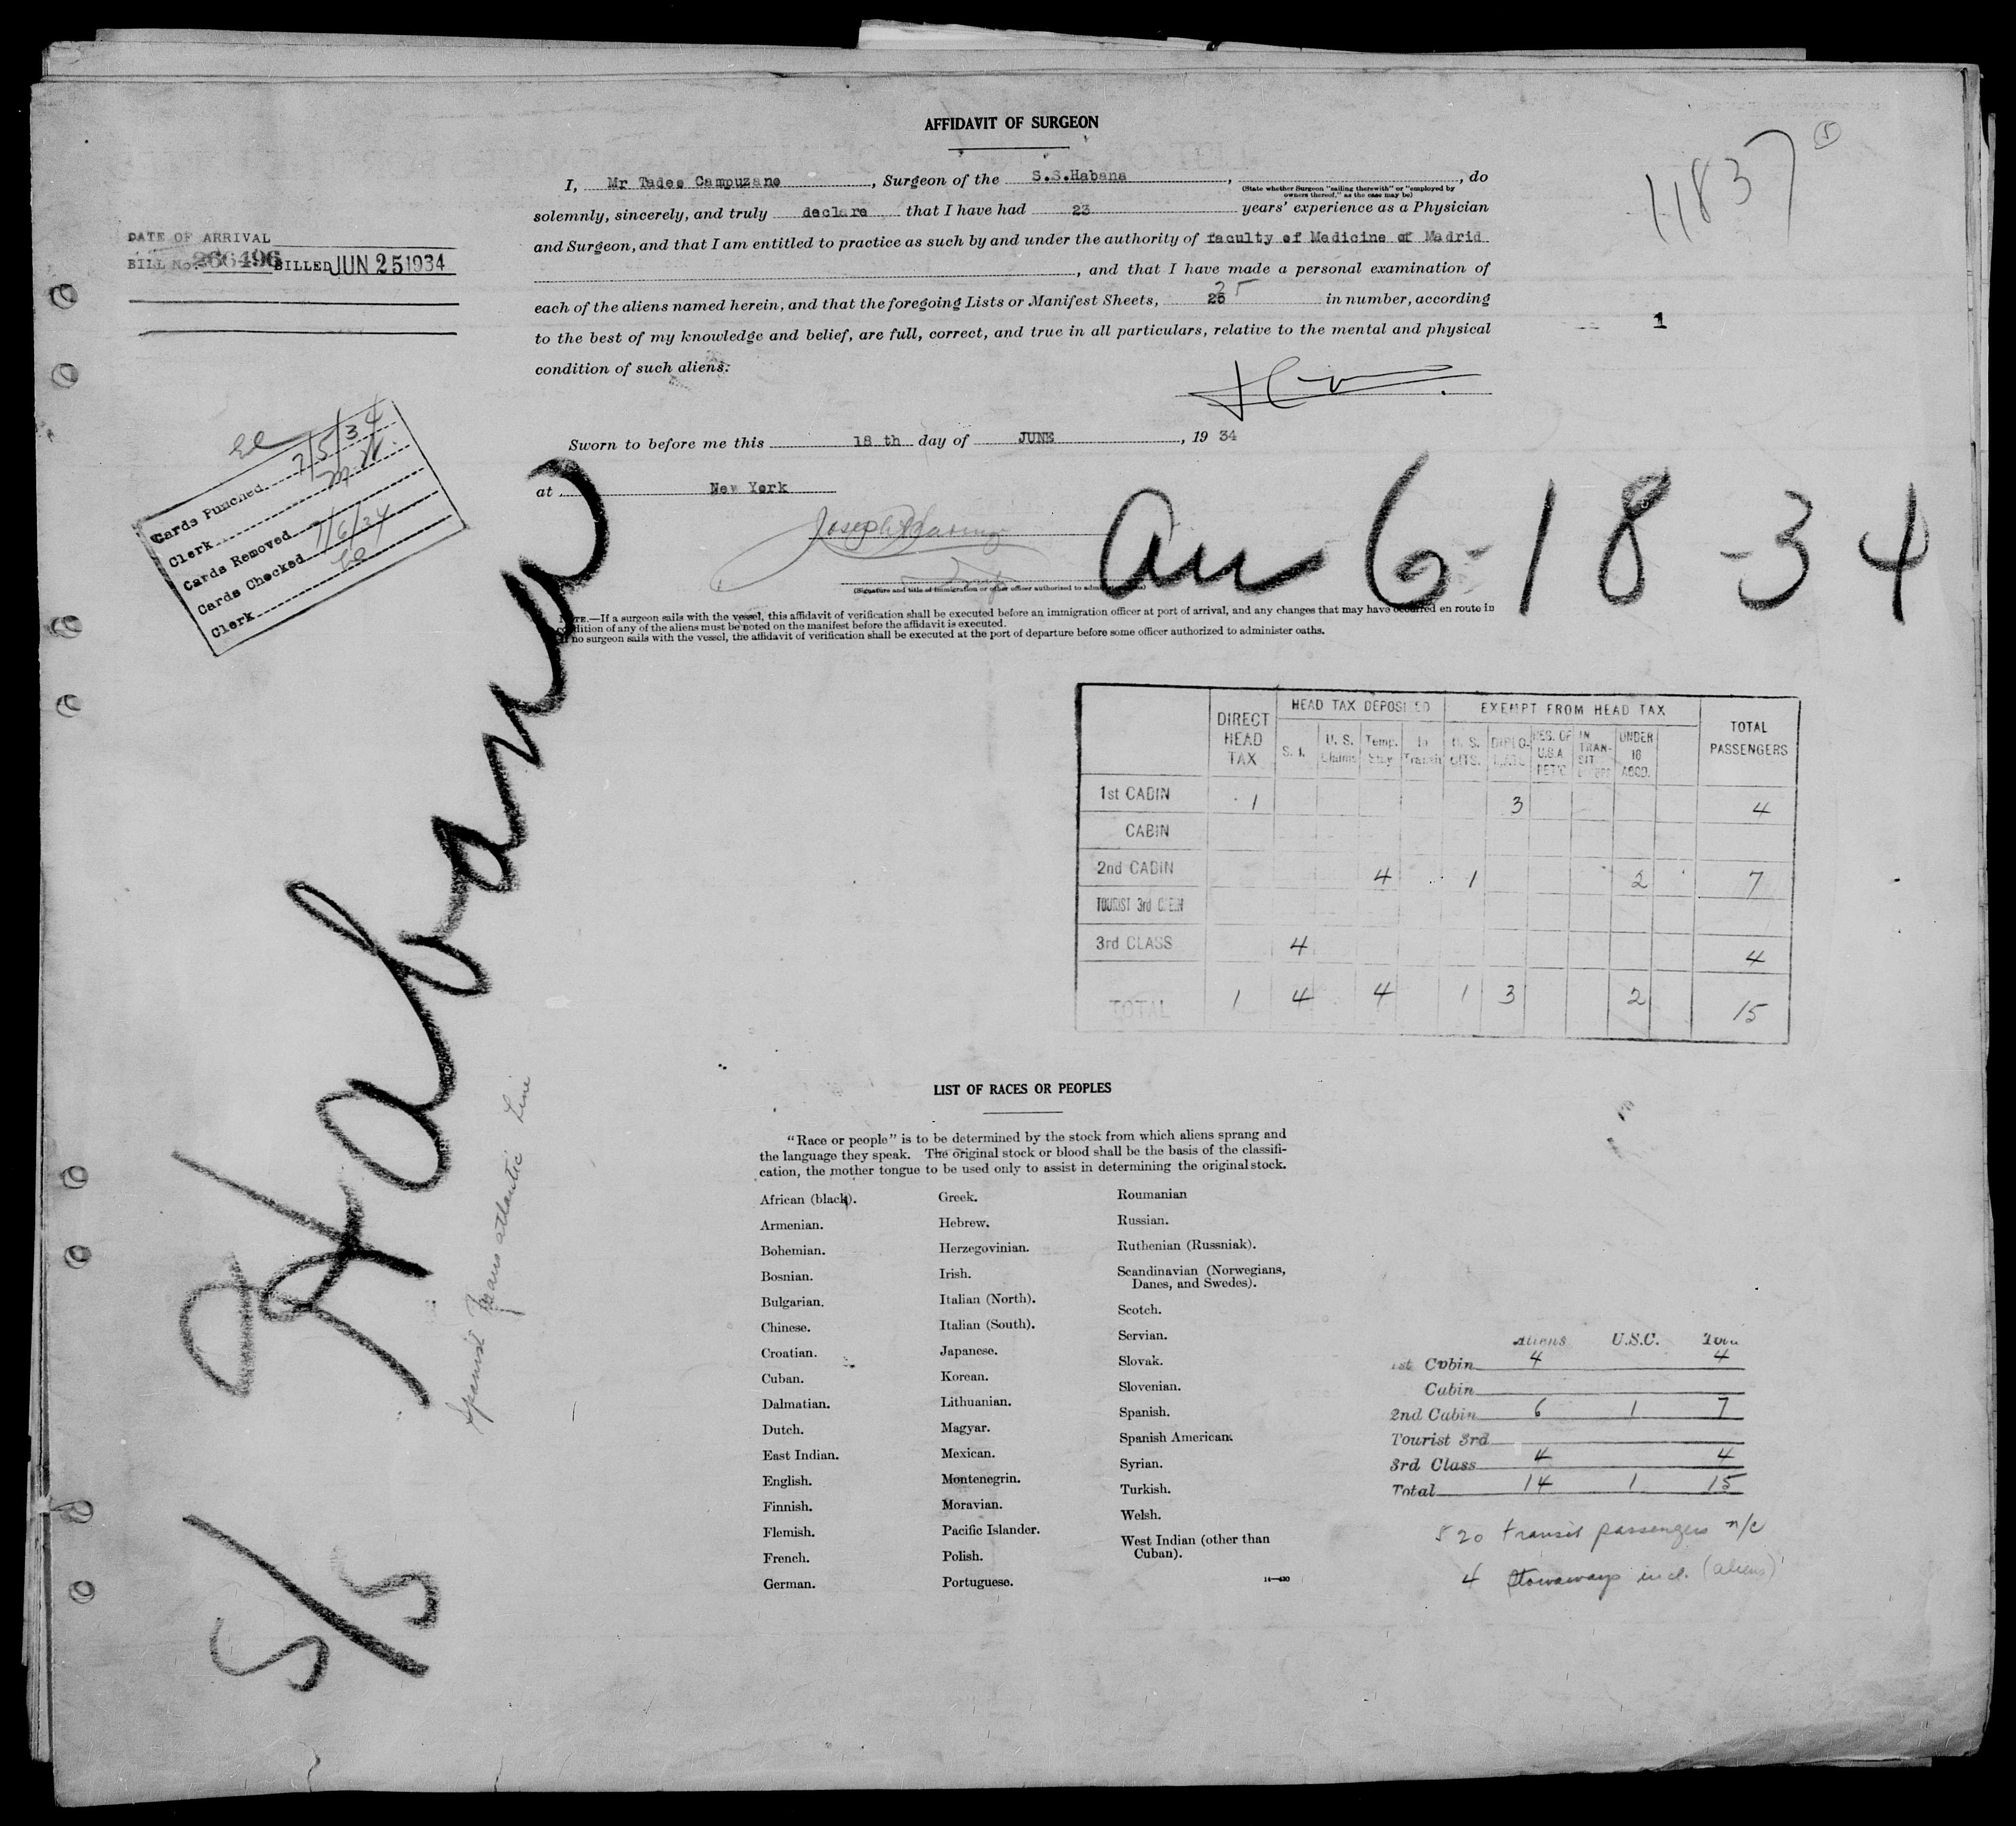 AFFIDAVIT OF SURGEON
I, Mr Tadeo Campuzano, Surgeon of the S.S.Habana, , do
(State whether Surgeon "sailing therewith" or "employed by
owners thereof," as the case may be)
solemnly, sincerely, and truly declare that I have had 23 years' experience as a Physician
and Surgeon, and that I am entitled to practice as such by and under the authority of faculty of Medicine of Madrid
, and that I have made a personal examination of
25
each of the aliens named herein, and that the foregoing Lists or Manifest Sheets, in number, according
to the best of my knowledge and belief, are full, correct, and true in all particulars, relative to the mental and physical
condition of such aliens.
11837
5
1
DATE OF ARRIVAL
BILL No. 266496 BILLED JUN 25 1934
Sworn to before me this 18 th day of JUNE, 19 34
at New York
Joseph
(Signature and title of immigration or other officer authorized to
Cards Punched 7/5/34
Clerk
Cards Removed
Cards Checked 7/6/34
Clerk
6-18-34
NOTE.—If a surgeon sails with the vessel, this affidavit of verification shall be executed before an immigration officer at port of arrival, and any changes that may have occurred en route in
condition of any of the aliens must be noted on the manifest before the affidavit is executed.
If no surgeon sails with the vessel, the affidavit of verification shall be executed at the port of departure before some officer authorized to administer oaths.
Habana
Spanish Transatlantic Line
5/5
DIRECT HEAD TAX HEAD TAX DEPOSITED EXEMPT FROM HEAD TAX TOTAL PASSENGERS
S. I. U. S. Claims Temp. Stay In Transit U. S. CITS. DIPLO-MATS RES. OF U.S.A. RET'G IN TRAN-SIT UNDER 16 ACCD.
1st CABIN 1 3 4
CABIN
2nd CABIN 4 1 2 7
TOURIST 3rd CABIN
3rd CLASS 4 4
TOTAL 1 4 4 1 3 2 15
LIST OF RACES OR PEOPLES
"Race or people" is to be determined by the stock from which aliens sprang and
the language they speak. The original stock or blood shall be the basis of the classifi-
cation, the mother tongue to be used only to assist in determining the original stock.
African (black).
Armenian.
Bohemian.
Bosnian.
Bulgarian.
Chinese.
Croatian.
Cuban.
Dalmatian.
Dutch.
East Indian.
English.
Finnish.
Flemish.
French.
German.
Greek.
Hebrew.
Herzegovinian.
Irish.
Italian (North).
Italian (South).
Japanese.
Korean.
Lithuanian.
Magyar.
Mexican.
Montenegrin.
Moravian.
Pacific Islander.
Polish.
Portuguese.
Roumanian
Russian.
Ruthenian (Russniak).
Scandinavian (Norwegians,
Danes, and Swedes).
Scotch.
Servian.
Slovak.
Slovenian.
Spanish.
Spanish American.
Syrian.
Turkish.
Welsh.
West Indian (other than
Cuban).
14—430
Aliens U.S.C. Total
1st Cabin 4 4
Cabin
2nd Cabin 6 1 7
Tourist 3rd
3rd Class 4 4
Total 14 1 15
520 transit passengers n/c
4 Stowaways incl. (aliens)